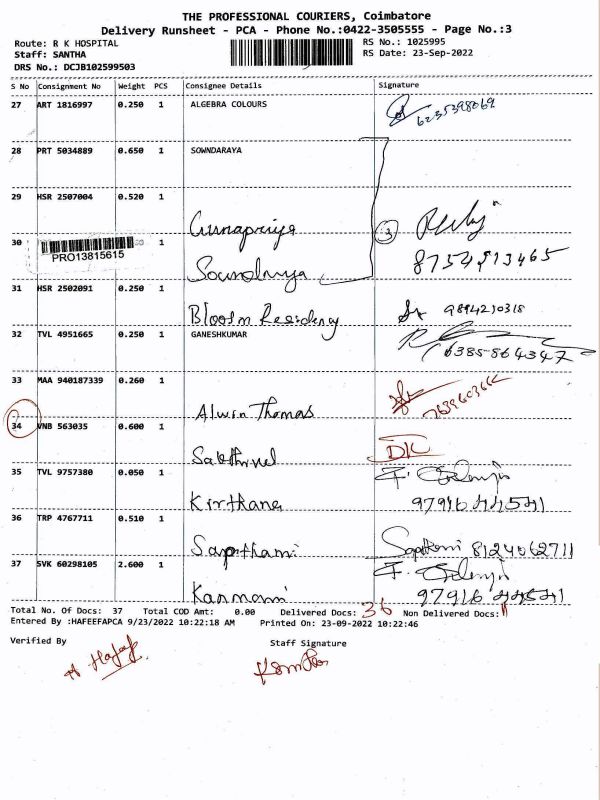 THE PROFESSIONAL COURIERS, Coimbatore
Delivery Runsheet - PCA - Phone No.:0422-3505555 - Page No.:3
Route: R K HOSPITAL
Staff: SANTHA
DRS No.: DCJB102599503
RS No.: 1025995
RS Date: 23-Sep-2022
S No Consignment No Weight PCS Consignee Details Signature
27 ART 1816997 0.250 1 ALGEBRA COLOURS 6235398069
28 PRT 5034889 0.650 1 SOWNDARAYA
29 HSR 2507004 0.520 1 Gunapriya 3
30 PRO13815615 1 Soundariya 8754513465
31 HSR 2502091 0.250 1 Bloosm Residency 9894210318
32 TVL 4951665 0.250 1 GANESHKUMAR 6385864347
33 MAA 940187339 0.260 1 Alwin Thomas
34 VNB 563035 0.600 1 Sakthivel DK
35 TVL 9757380 0.050 1 Kirthana 9791644541
36 TRP 4767711 0.510 1 Sapthami Sapthami 8124062711
37 SVK 60298105 2.600 1 Kanmani 9791644541
Total No. Of Docs: 37 Total COD Amt: 0.00 Delivered Docs: 36 Non Delivered Docs: 1
Entered By :HAFEEFAPCA 9/23/2022 10:22:18 AM Printed On: 23-09-2022 10:22:46
Verified By Staff Signature